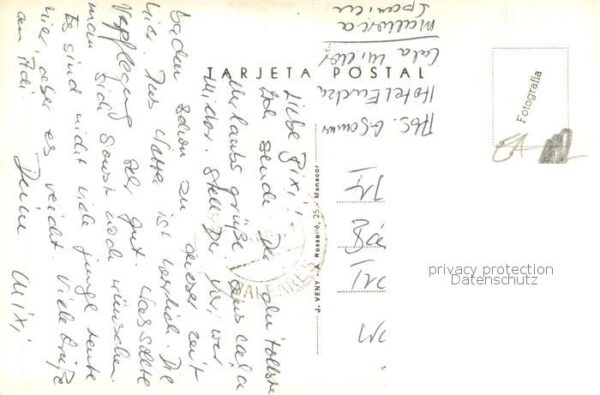 TARJETA POSTAL
Abs. G. Sommer
Hotel Eureka
Cala Millor
Mallorca
Spanien
Fotografía
Liebe Pixi!
Ich sende Dir die tollsten
Urlaubsgrüße aus Cala
Millor. Stell Dir vor, wir
baden schon zu dieser Zeit
hier. Das Wetter ist herrlich. Die
Verpflegung sehr gut. Was sollte
man sich sonst noch wünschen.
Es sind nicht viele junge Leute
hier, aber es reicht. Viele Grüße
an Adi. Deine Mixi,
BALEARES
J. VENY - A. Rosselló, 25 - Manacor
privacy protection
Datenschutz